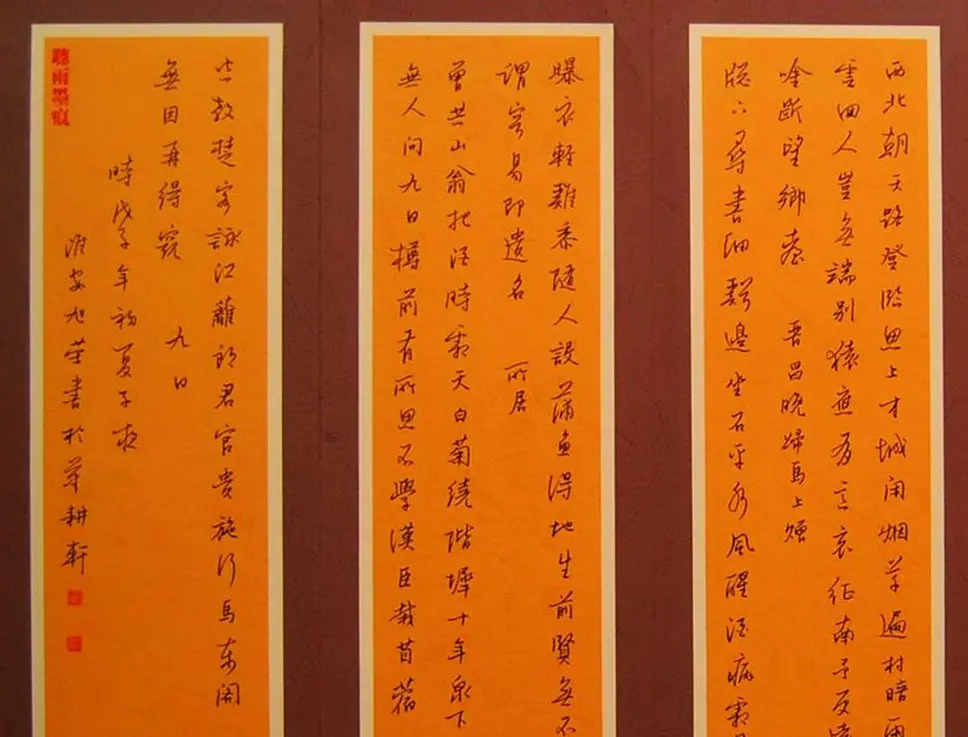 西北朝天路登臨思上才城闲烟草遍村暗雨
雲回人豈無端别猿應有意哀征南予更遠
吟斷望鄉臺 晋昌晚歸馬上贈
牕下尋書細谿邊坐石平水風醒酒病霜
曝衣輕雞黍隨人設蒲魚得地生前賢無不
謂容易即遺名 所居
曾共山翁把酒時霜天白菊繞階墀十年泉下
無人問九日樽前有所思不學漢臣栽苜蓿
空教楚客詠江蘺郎君官贵施行馬東閣
無因再得窺 九日
時戊子年初夏子夜
淮安旭莹書於草耕軒
聽雨墨痕